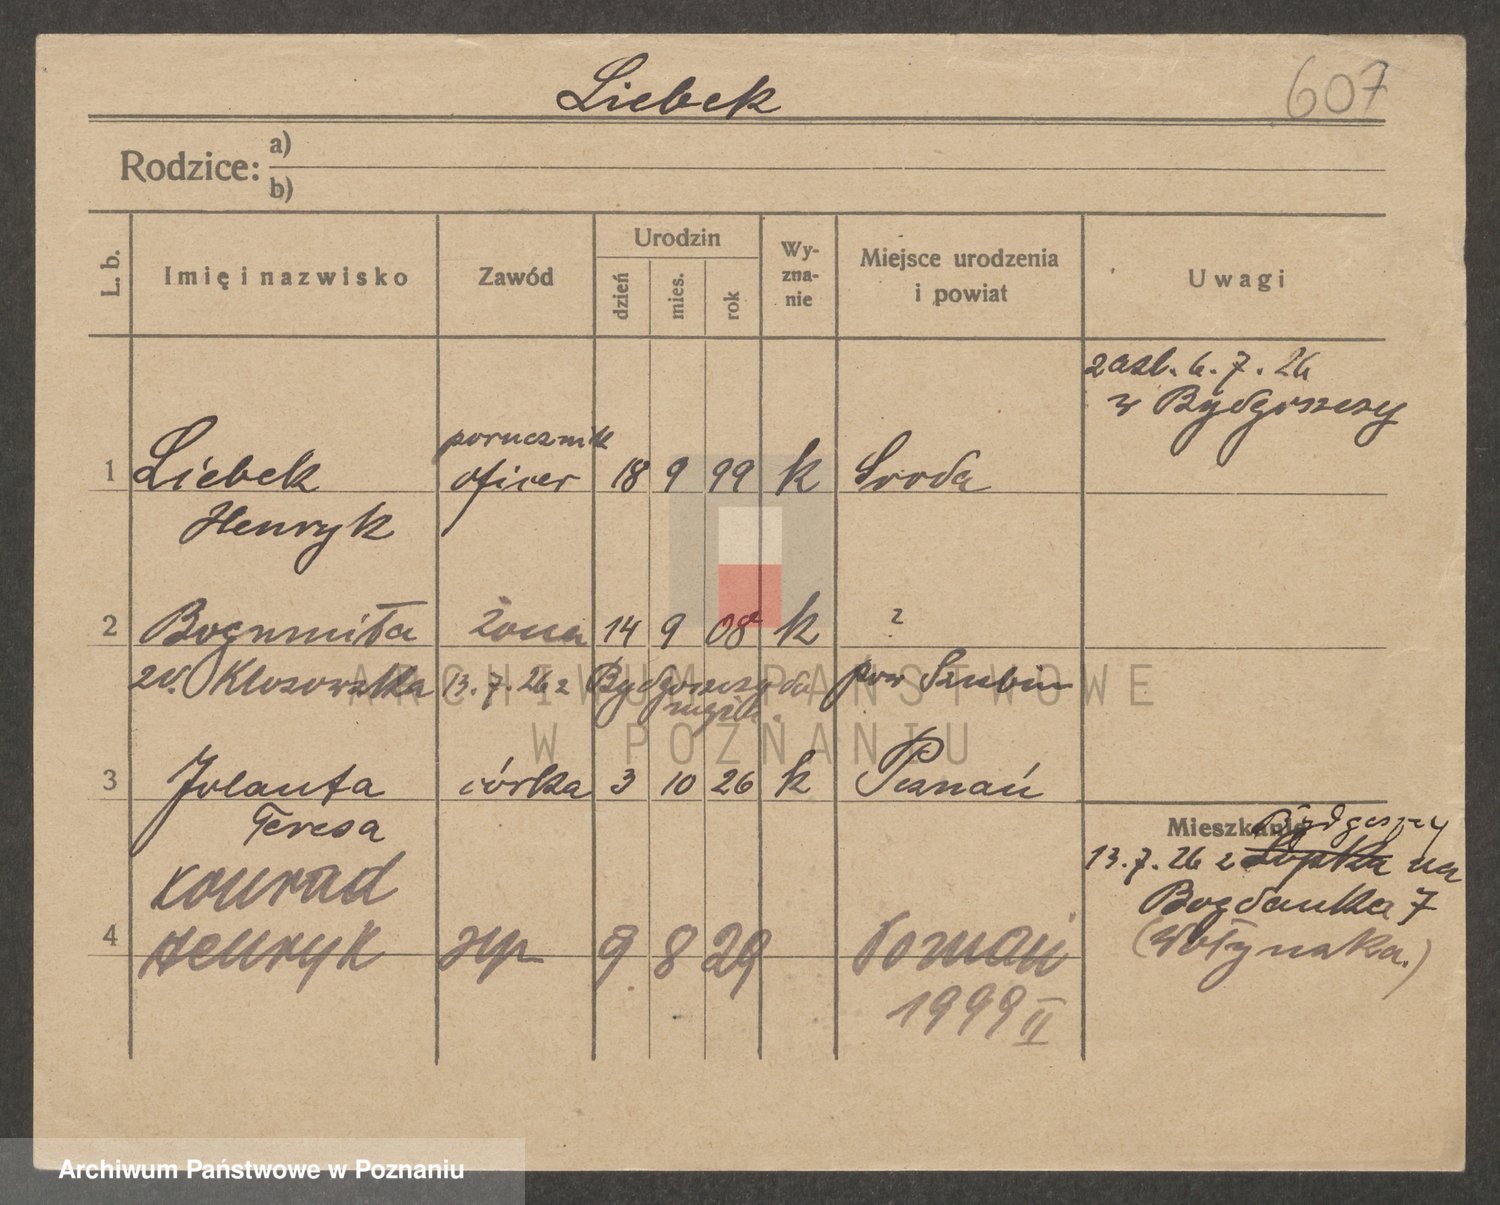 Liebek
607
Rodzice: a)
b)
L. b.
Imię i nazwisko
Zawód
Urodzin
dzień
mies.
rok
Wy-
zna-
nie
Miejsce urodzenia
i powiat
Uwagi
zasl. 6. 7. 26
w Bydgoszczy
porucznik
1 Liebek oficer 18 9 99 k Sroda
Henryk
2 Bogumiła żona 14 9 08 k
Kłosowska 13. 7. 26 z Bydgoszczy do pow Szubin
3 Jolanta córka 3 10 26 k Poznań
Teresa
Mieszkanie
Bydgoszczy
13. 7. 26 z na
Bogdanka 7
Konrad
4 Henryk syn 9 8 29 Poznań
1999 II
ARCHIWUM PAŃSTWOWE
W POZNANIU
Archiwum Państwowe w Poznaniu